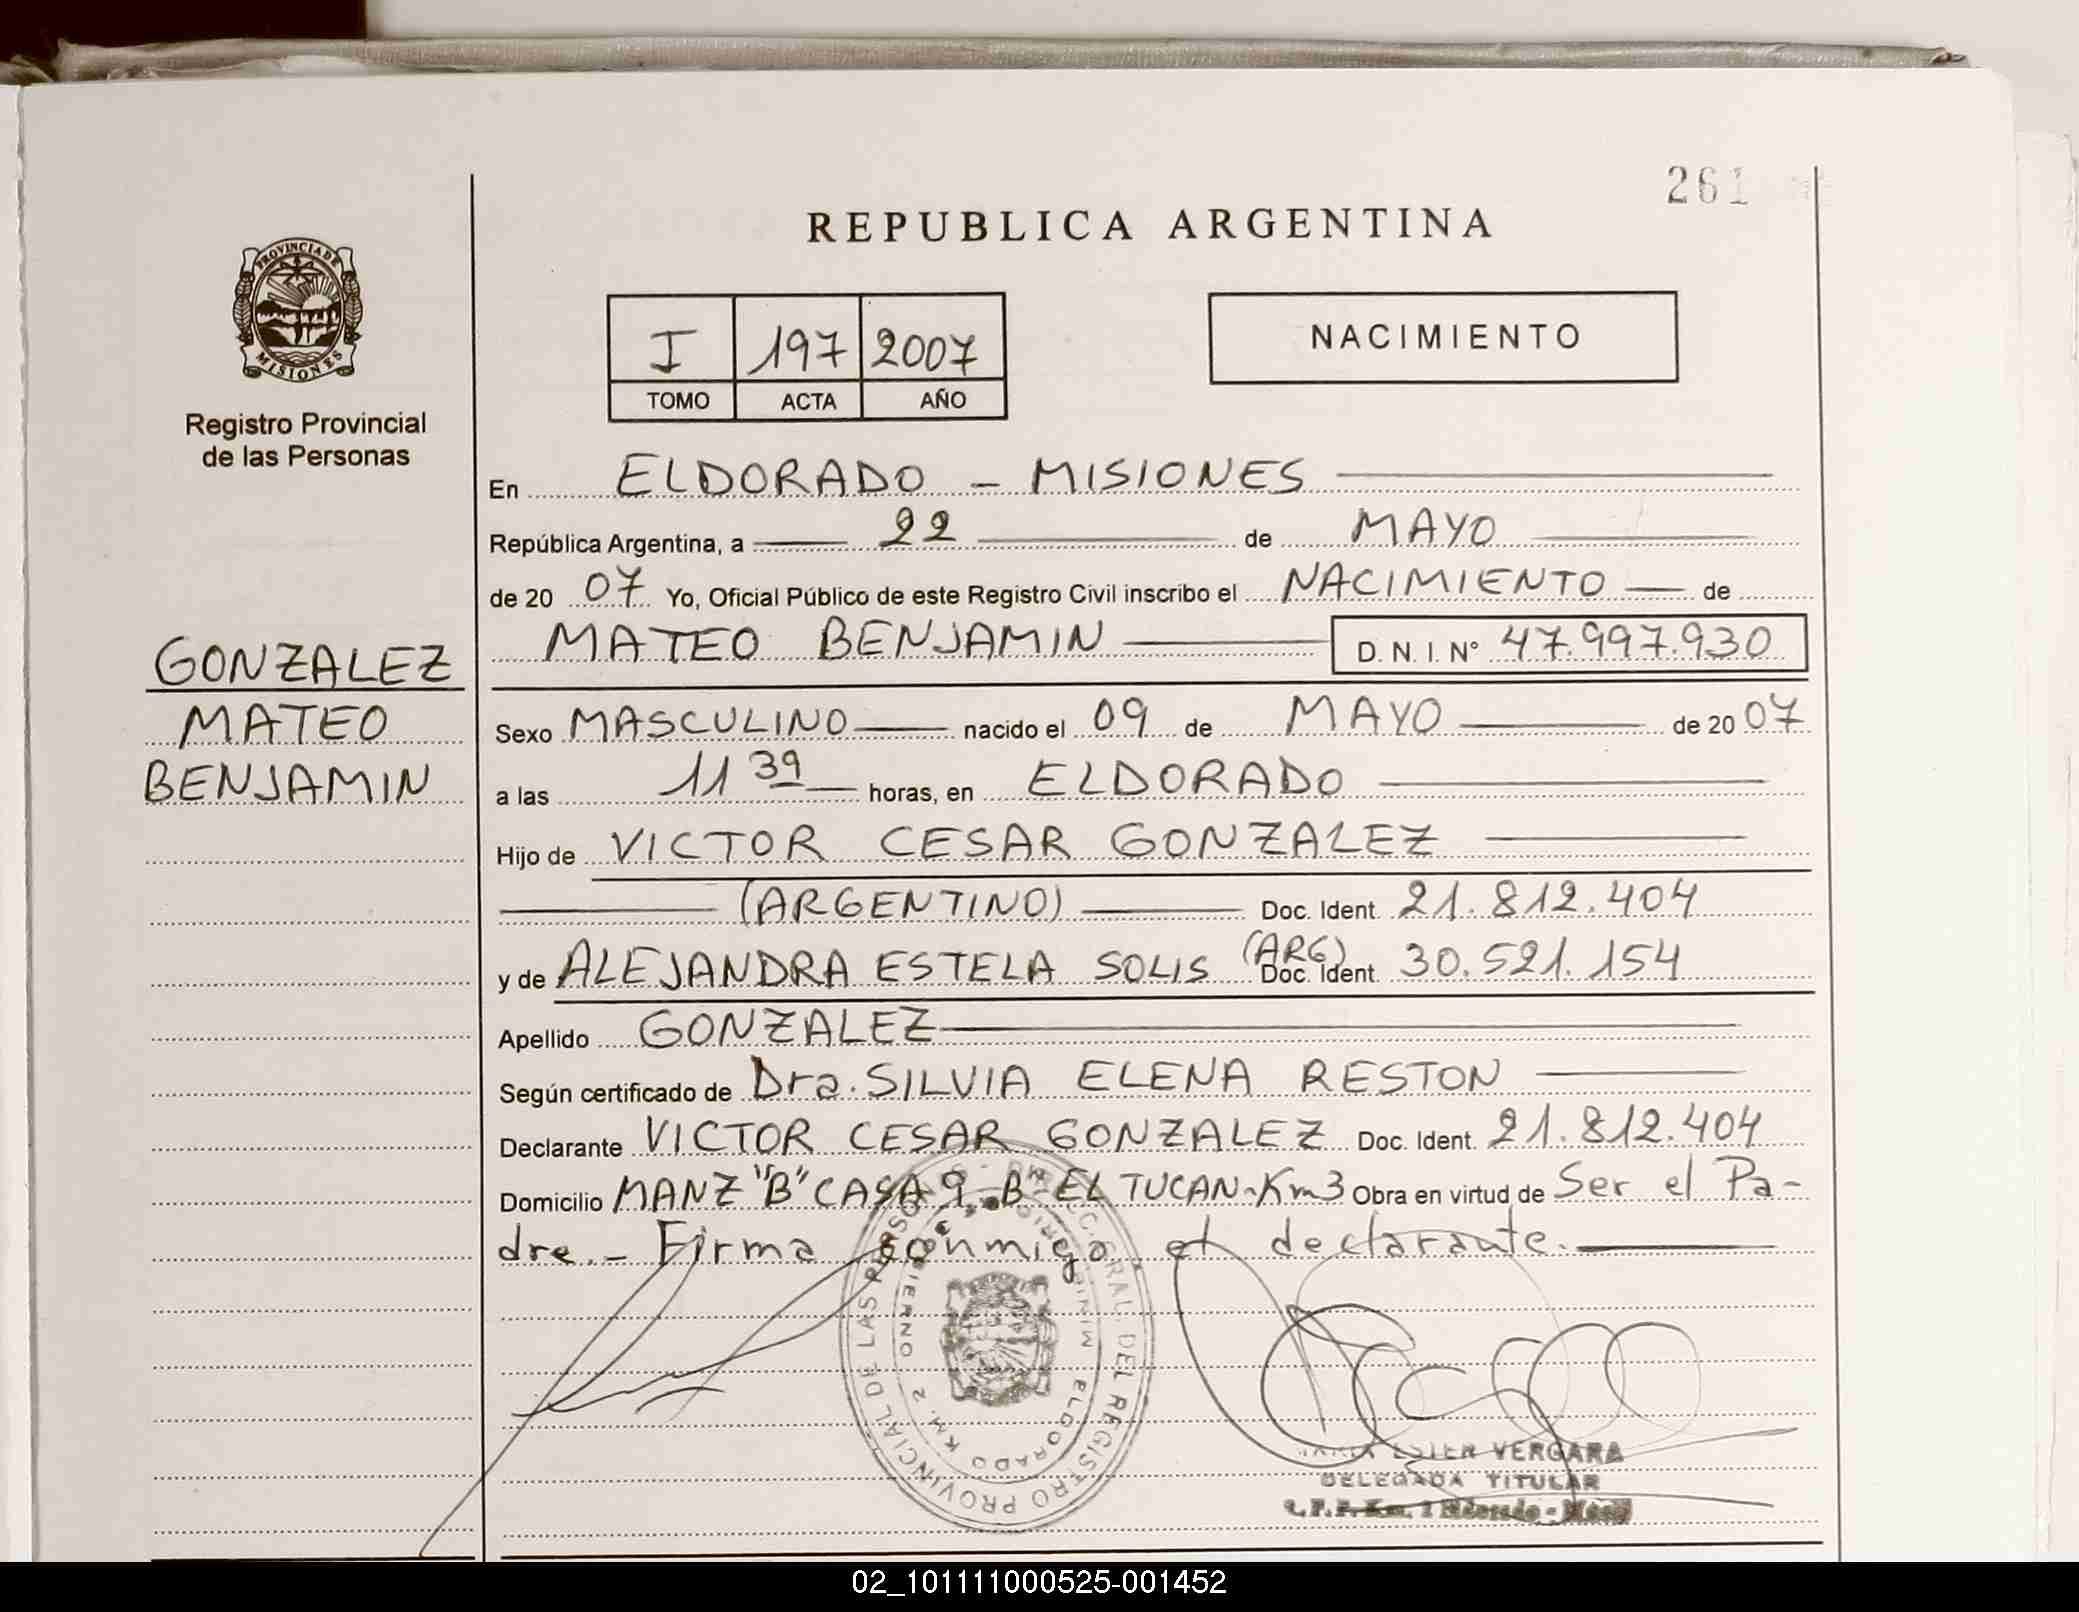 261
REPUBLICA ARGENTINA
PROVINCIA DE
MISIONES
Registro Provincial
de las Personas
I 197 2007
TOMO ACTA AÑO
NACIMIENTO
En ELDORADO - MISIONES
República Argentina, a 22 de MAYO
de 20 07 Yo, Oficial Público de este Registro Civil inscribo el NACIMIENTO de
MATEO BENJAMIN D. N. I. N° 47.997.930
GONZALEZ
MATEO
BENJAMIN
Sexo MASCULINO nacido el 09 de MAYO de 20 07
a las 11 39 horas, en ELDORADO
Hijo de VICTOR CESAR GONZALEZ
(ARGENTINO) Doc. Ident. 21.812.404
y de ALEJANDRA ESTELA SOLIS (ARG) Doc. Ident. 30.521.154
Apellido GONZALEZ
Según certificado de Dra. SILVIA ELENA RESTON
Declarante VICTOR CESAR GONZALEZ Doc. Ident. 21.812.404
Domicilio MANZ "B" CASA 9 - B° EL TUCAN - Km3 Obra en virtud de Ser el Pa-
dre.- Firma conmigo el declarante.
GRAL. DEL REGISTRO PROVINCIAL DE LAS
ELDORADO KM. 2
MARIA ESTER VERGARA
DELEGADA TITULAR
Eldorado -
02_101111000525-001452